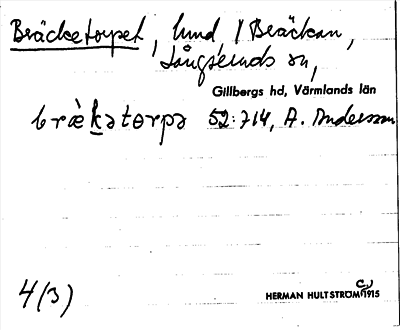 Bräcketorpet, lund / Bräckan,
Långseruds sn,
Gillbergs hd, Värmlands län
bræ̀kətorpə 52:714, A. Andersson
4(3)
HERMAN HULTSTRÖM C) 1915